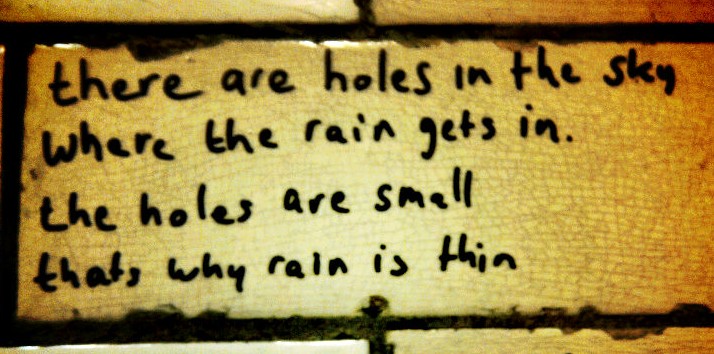 there are holes in the sky
where the rain gets in.
the holes are small
thats why rain is thin